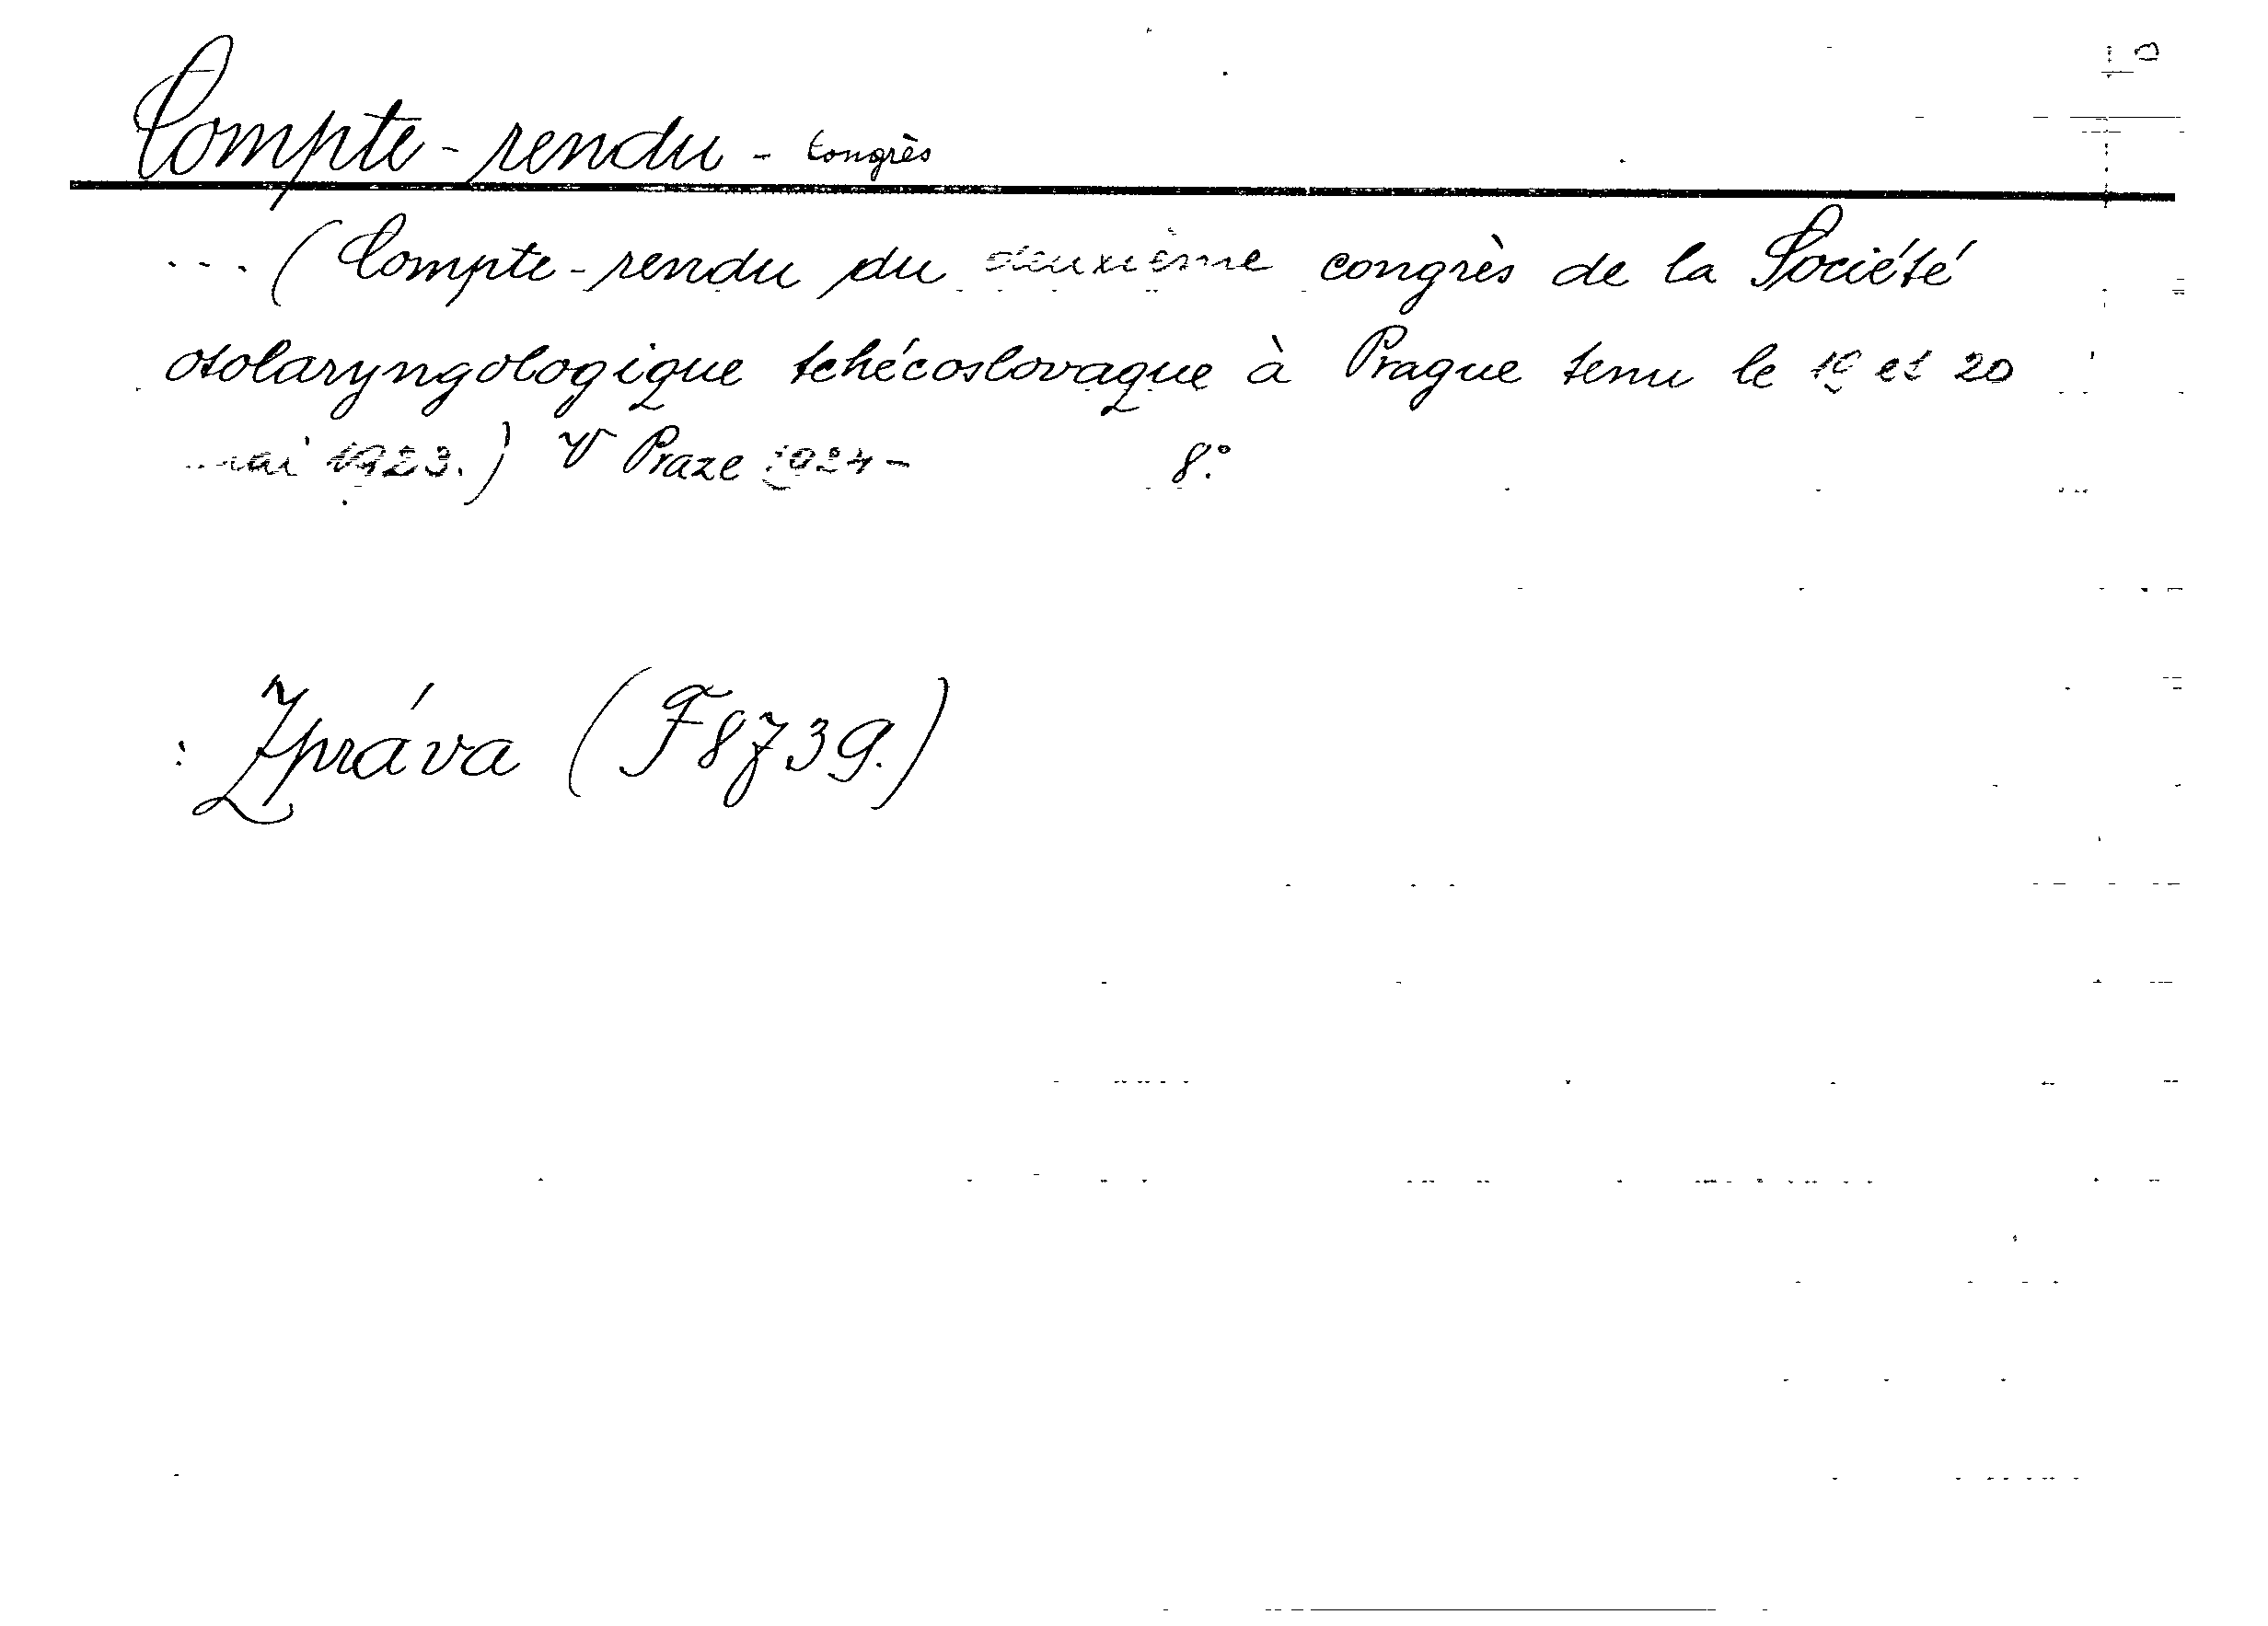 Compte-rendu - Congrès
... (Compte-rendu du deuxième congrès de la Société
otolaryngologique tchécoslovaque à Prague tenu le 19 et 20
mai 1923.) V Praze 1924- 8.°
: Zpráva (F8739.)